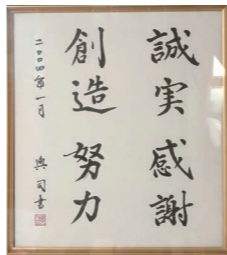 誠実感謝
創造努力
二〇〇四年一月
興司書